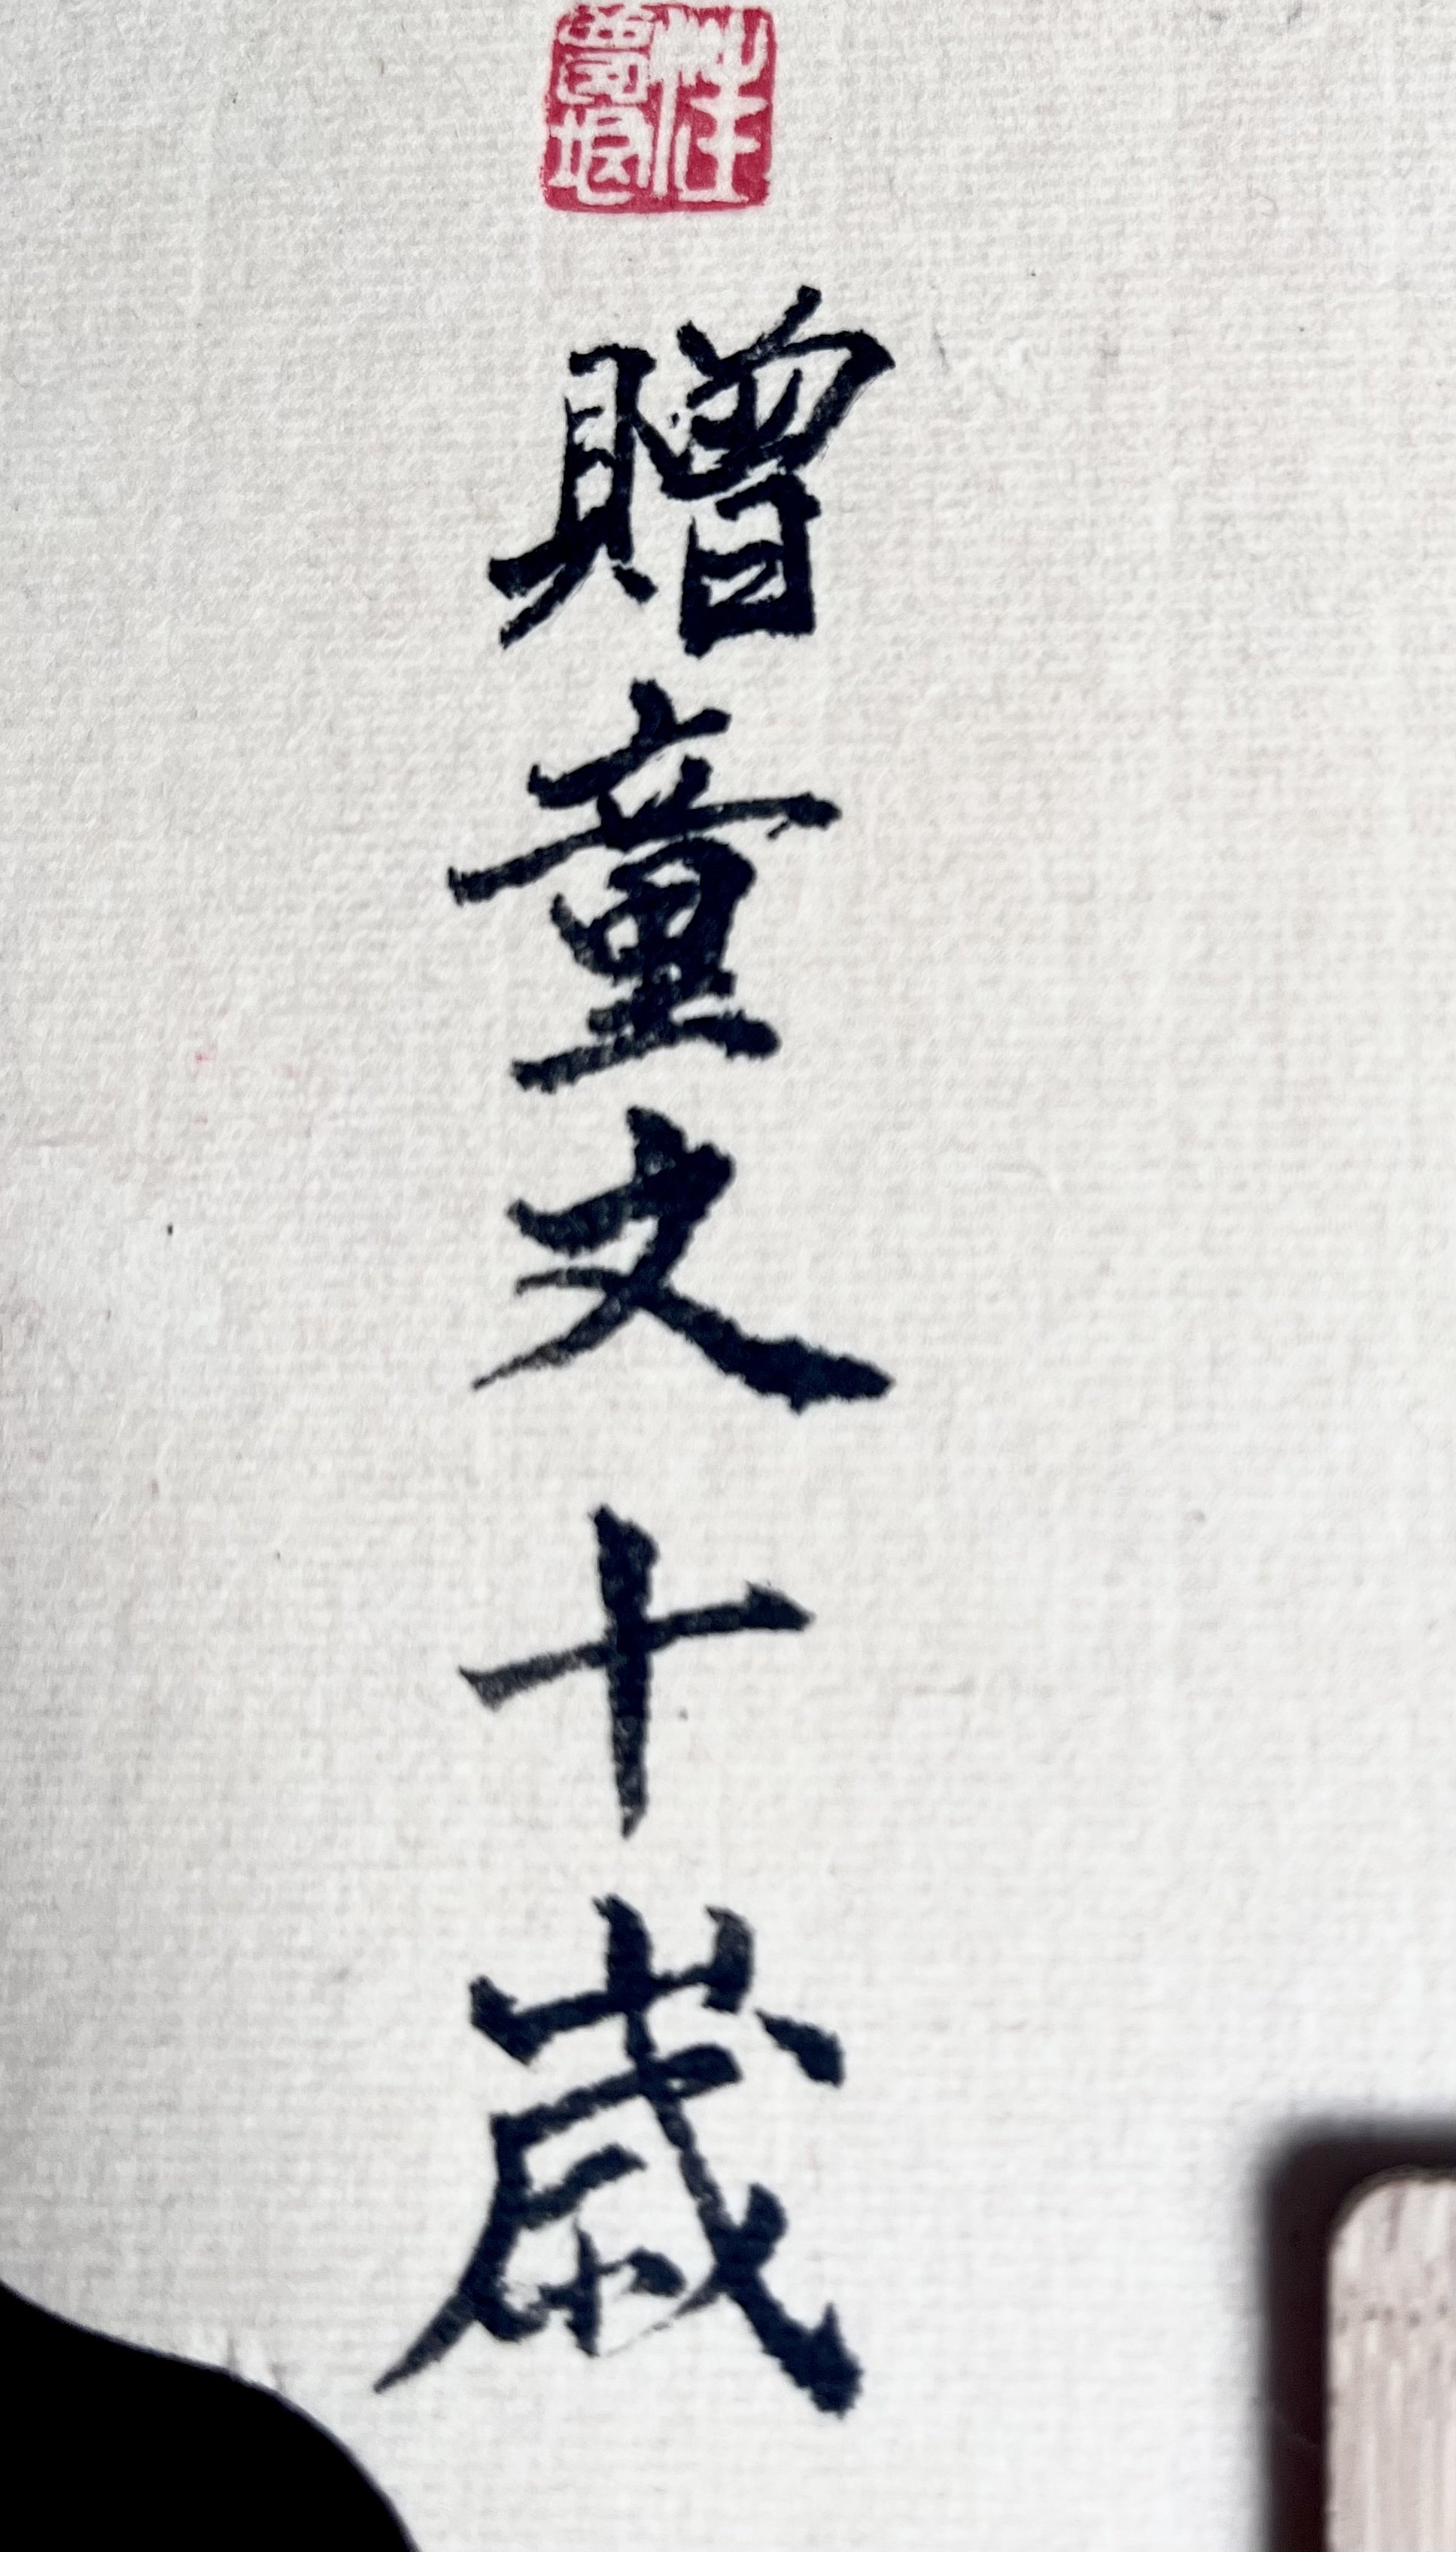 贈童文十歲